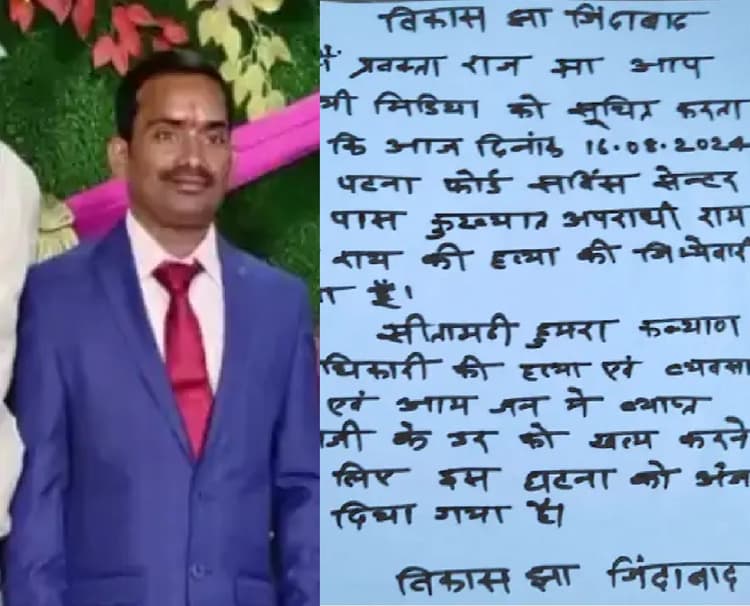 विकास झा जिंदाबाद
मैं प्रवक्ता राज झा आप
भी मिडिया को सूचित करता
कि आज दिनांक 16.08.2024
पटना फोर्ड सर्विस सेन्टर
पास कुख्यात अपराधी राम
राय की हत्या की जिम्मेवारी
ा हूँ।
सीतामढी डुमरा कल्याण
धिकारी की हत्या एवं व्यवसा
एवं आम जन मे व्याप्त
जी के डर को खत्म करने
लिए इस घटना को अंज
दिया गया है।
विकास झा जिंदाबाद